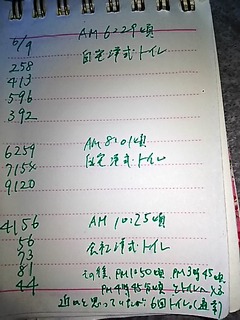 5/9 AM 6:29頃
258 自宅洋式トイレ
413
596
392
6259 AM 8:01頃
7154 自宅洋式トイレ
9120
4156 AM 10:25頃
56 会社洋式トイレ
73
81 その後、PM 12:50頃 PM 3時45頃
44 PM 4時45分頃 とトイレへ
と思っていたが 6回トイレ。(通常)